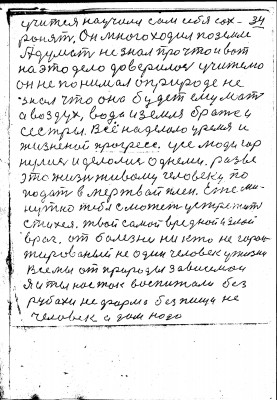 учится научила сам себя сох- 34
ранят, Он много ходил по земле
А думат не знал про что и вот
на это дело доверилос учителю
он не понимал о природе не
знал что она будет ему мат
а воздух, вода и земля братя и
сестры. Всё наделало время и
жизненой прогресс. уже люди гор
и делолис однеми, разве
это жизн живому человеку по
подат в мертвай плен. Еже ми-
нутно тебя сможет
стихея. твой самой вредной и злой
враг, от болезни ни кто не гаран
тированый не один человек в жизни
Все мы от природы зависемои
Я и ты на сток воспитали без
рубахи не фарма без пищи не
человек а дом надо